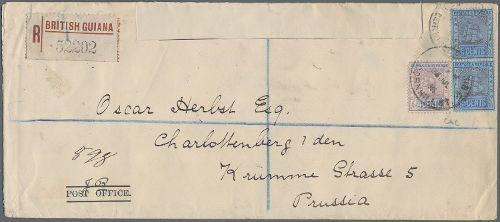 R
BRITISH GUIANA
52202
CENTS
CENTS
Oscar Herbst Esq.
Charlottenberg 1 den
Krumme Strasse 5
Prussia
POST OFFICE.